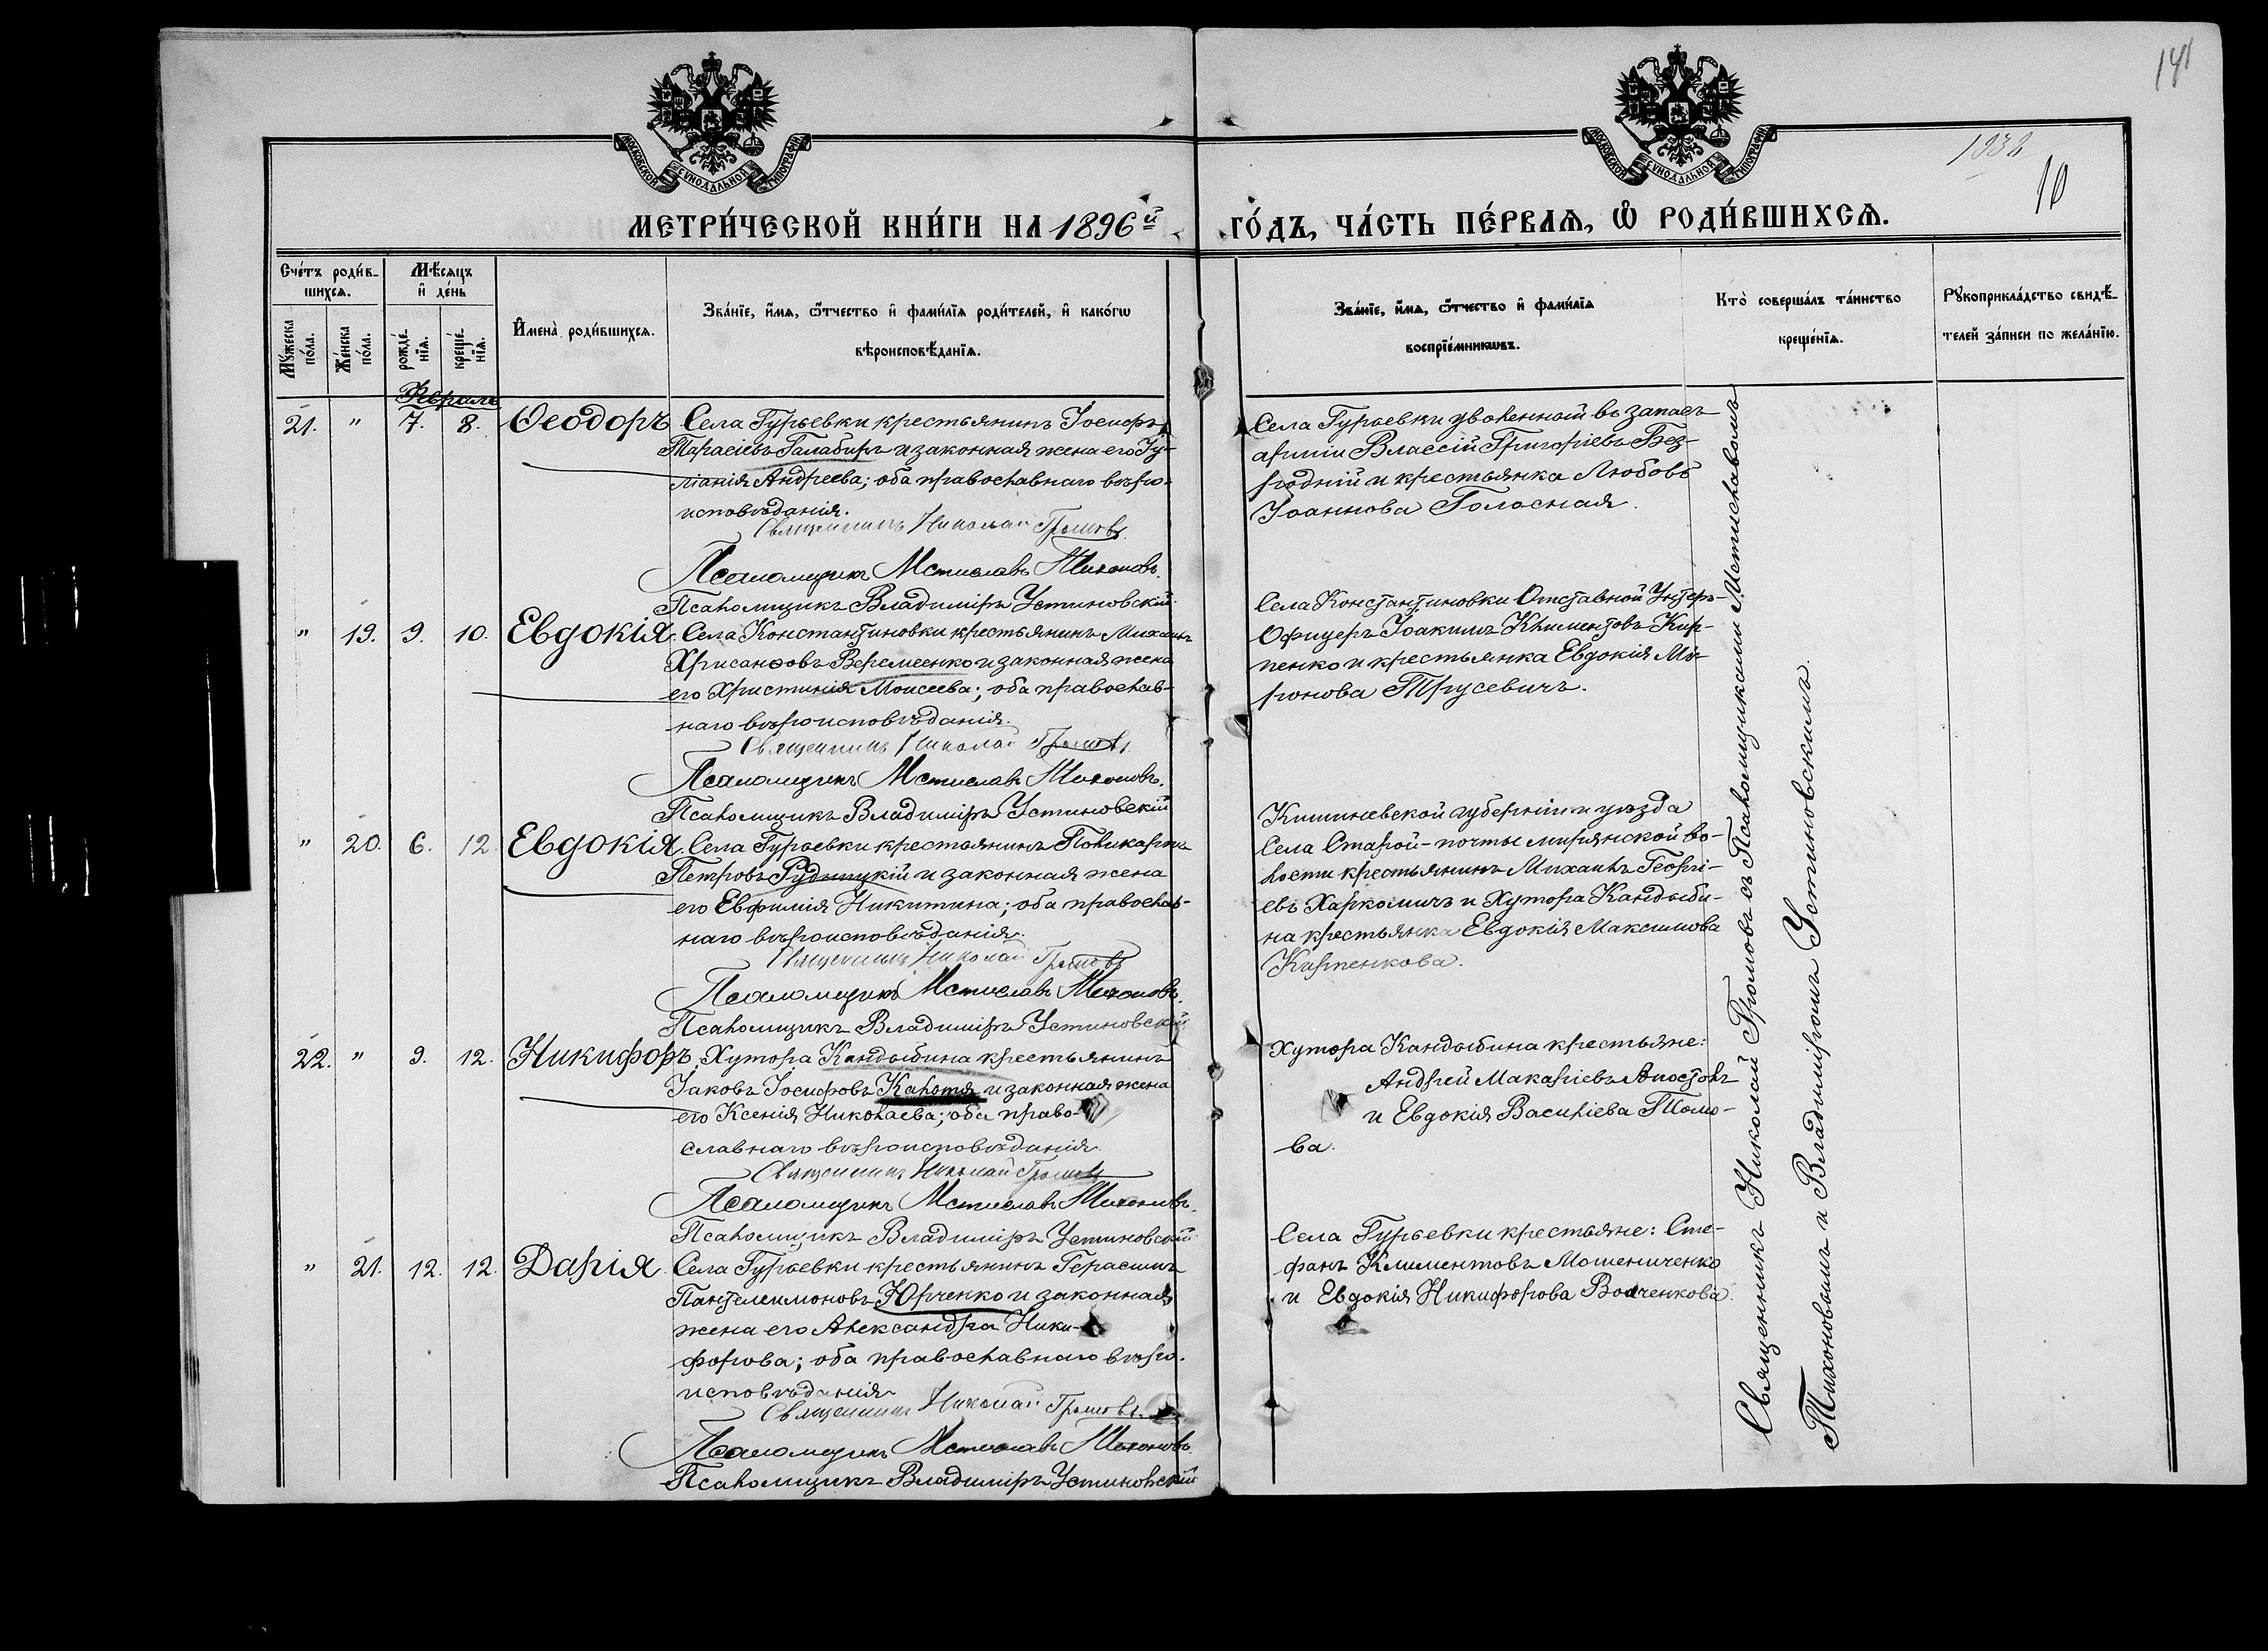 141
1932
10
МОСКОВСКОЙ СУНОДАЛЬНОЙ ТИПОГРАФІИ
МОСКОВСКОЙ СУНОДАЛЬНОЙ ТИПОГРАФІИ
МЕТРИ́ЧЕСКОЙ КНИ́ГИ НА 1896й ГО́ДЪ, ЧА́СТЬ ПЕ́РВАѦ, Ѡ҆ РОДИ́ВШИХСѦ.
Сче́тъ роди́в-
шихся.
Мѣ́сяцъ
и҆ де́нь
Му́жеска
по́ла.
Же́нска
по́ла.
рожде́-
нїя.
креще́-
нїя.
И҆мена̀ роди́вшихся.
Зва́нїе, и҆́мя, ѻ҆́тчество и҆ фами́лїя роди́телей, и҆ како́гѡ
вѣроисповѣ́данїя.
Зва́нїе, и҆́мя, ѻ҆́тчество и҆ фами́лїя
воспрїе́мникѡвъ.
Кто̀ соверша́лъ та́инство
креще́нїя.
Рꙋкоприкла́дство свидѣ́-
телей за́писи по жела́нїю.
Февраль
21. " 7. 8. Ѳеодоръ
Села Гурьевки крестьянинъ Іосифъ
Тарасіевъ Галабиръ и законная жена его Іу-
ліанія Андреева; оба православнаго вѣро-
исповѣданія.
Священникъ Николай Громовъ
Псаломщикъ Мстиславъ Тихоновъ.
Псаломщикъ Владиміръ Устиновскій
Села Гурьевки уволенной въ запасъ
арміи Влассій Григоріевъ Без-
родній и крестьянка Любовь
Іоаннова Голосная.
" 19. 9. 10. Евдокія.
Села Константиновки крестьянинъ Михаилъ
Хрисанѳовъ Веремеенко и законная жена
его Христинія Моисеева; оба православ-
наго вѣроисповѣданія.
Священникъ Николай Громовъ
Псаломщикъ Мстиславъ Тихоновъ.
Псаломщикъ Владиміръ Устиновскій
Села Константиновки Отставной Унтеръ-
Офицеръ Іоакимъ Климентовъ Кир-
пенко и крестьянка Евдокія Ми-
ронова Трусевичъ.
" 20. 6. 12. Евдокія.
Села Гурьевки крестьянинъ Поликарпъ
Петровъ Рудницкій и законная жена
его Евфимія Никитина; оба православ-
наго вѣроисповѣданія.
Священникъ Николай Громовъ
Псаломщикъ Мстиславъ Тихоновъ.
Псаломщикъ Владиміръ Устиновскій
Кишиневской губерніи и уѣзда
Села Старой-почты мирянской во-
лости крестьянинъ Михаилъ Георгі-
евъ Харкомичъ и Хутора Кандыби-
на крестьянка Евдокія Максимова
Кирпенкова.
22. " 9. 12. Никифоръ.
Хутора Кандыбина крестьянинъ
Іаковъ Іосифовъ Калотя и законная жена
его Ксенія Николаева; оба право-
славнаго вѣроисповѣданія
Священникъ Николай Громовъ
Псаломщикъ Мстиславъ Тихоновъ.
Псаломщикъ Владиміръ Устиновскій
Хутора Кандыбина крестьяне:
Андрей Макаріевъ Апостолъ
и Евдокія Василіева Томо-
ва.
" 21. 12. 12. Дарія.
Села Гурьевки крестьянинъ Герасимъ
Пантелеимоновъ Юрченко и законная
жена его Александра Ники-
форова; оба православнаго вѣро-
исповѣданія
Священникъ Николай Громовъ.
Псаломщикъ Мстиславъ Тихоновъ
Псаломщикъ Владиміръ Устиновскій
Села Гурьевки крестьяне: Сте-
фанъ Климентовъ Мошениченко
и Евдокія Никифорова Волченкова.
Священникъ Николай Громовъ съ Псаломщиками Мстиславомъ
Тихоновымъ и Владиміромъ Устиновскимъ.